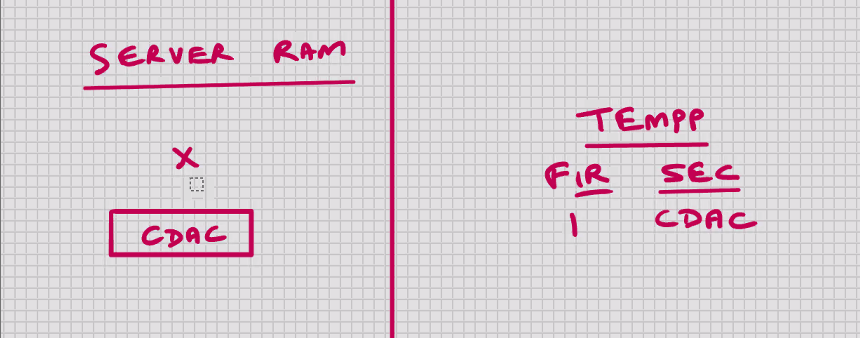 SERVER RAM
X
CDAC
TEMPP
FIR SEC
1 CDAC